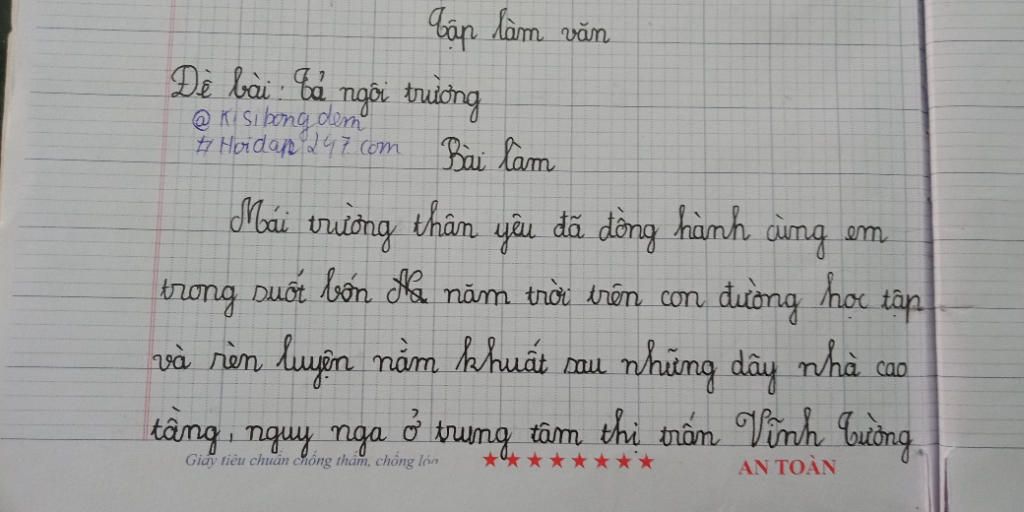 Tập làm văn
Đề bài: Tả ngôi trường
@ Kisibongdem
# Hoidap247.com
Bài làm
Mái trường thân yêu đã đồng hành cùng em
trong suốt bốn năm trời trên con đường học tập
và rèn luyện nằm khuất sau những dãy nhà cao
tầng, nguy nga ở trung tâm thị trấn Vĩnh Tường
Giấy tiêu chuẩn chống thấm, chống lóa ★★★★★★★★ AN TOÀN